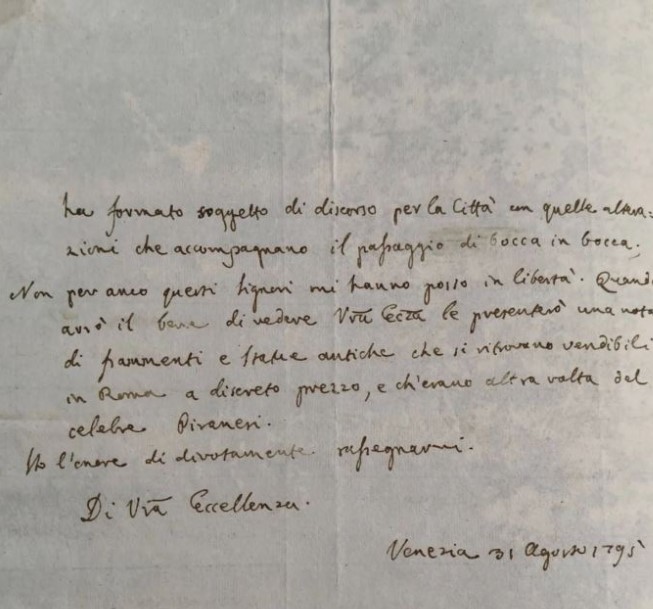 ha formato soggetto di discorso per la Città con quelle altera=
zioni che accompagnano il passaggio di bocca in bocca.
Non per anco questi Signori mi hanno posto in libertà. Quando
avrò il bene di vedere Vr̅a Ecza le presenterò una nota
di frammenti e statue antiche che si ritrovano vendibili
in Roma a discreto prezzo, e ch'erano altra volta del
celebre Piranesi.
Ho l'onore di divotamente rassegnarmi.
Di Vr̅a Eccellenza.
Venezia 31 Agosto 1795